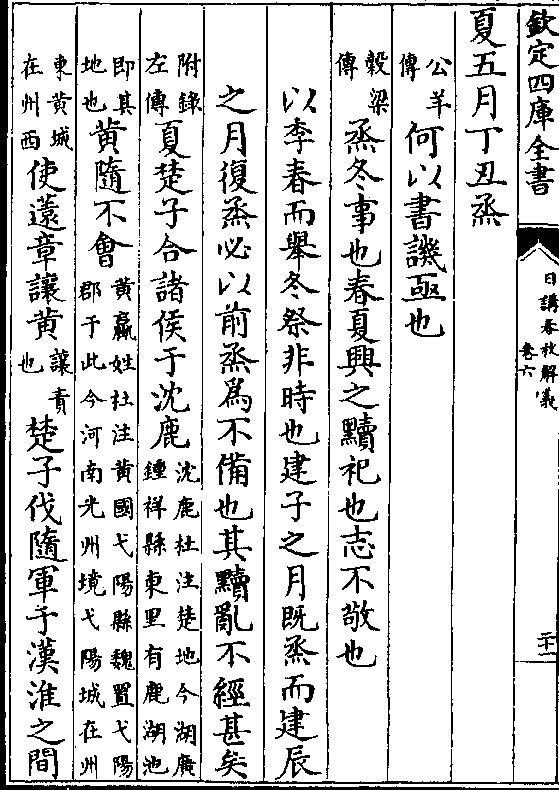 欽定四庫全書
日講春秋解義
卷六
二十一
夏五月丁丑烝
公羊傳何以書譏亟也
穀梁傳烝冬事也春夏興之黷祀也志不敬也
以季春而舉冬祭非時也建子之月既烝而建辰
之月復烝必以前烝為不備也其黷亂不經甚矣
附錄左傳夏楚子合諸侯于沈鹿沈鹿杜注楚地今湖廣鍾祥縣東里有鹿湖池
即其地也黃隨不會黃嬴姓杜注黃國弋陽縣魏置弋陽郡于此今河南光州境弋陽城在州
東黃城在州西使薳章讓黃讓責也楚子伐隨軍于漢淮之間